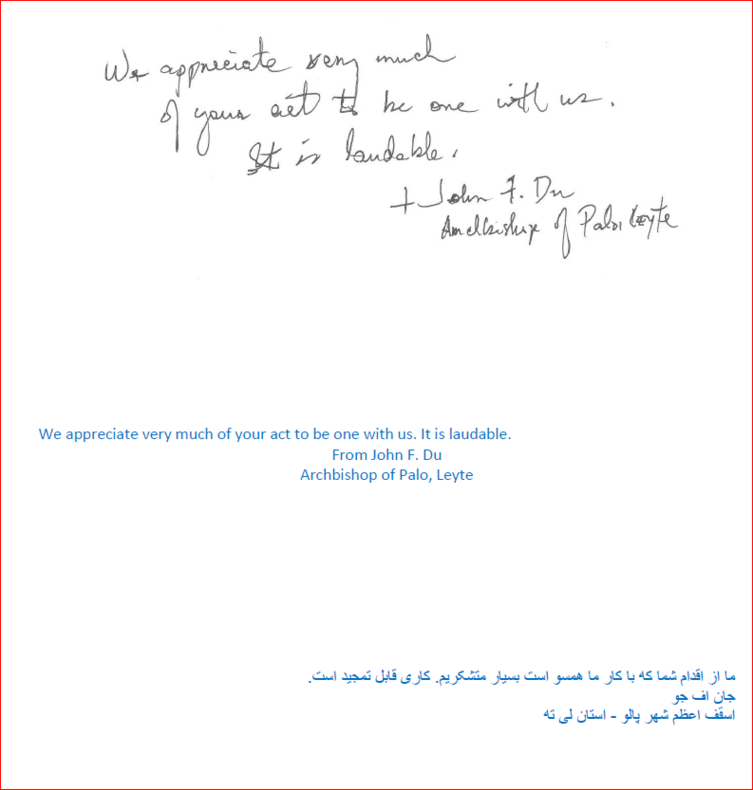 We appreciate very much
of your act to be one with us.
It is laudable.
+ John F. Du
Archbishop of Palo, Leyte
We appreciate very much of your act to be one with us. It is laudable.
From John F. Du
Archbishop of Palo, Leyte
ما از اقدام شما که با کار ما همسو است بسیار متشکریم. کاری قابل تمجید است.
جان اف جو
اسقف اعظم شهر پالو - استان لی ته